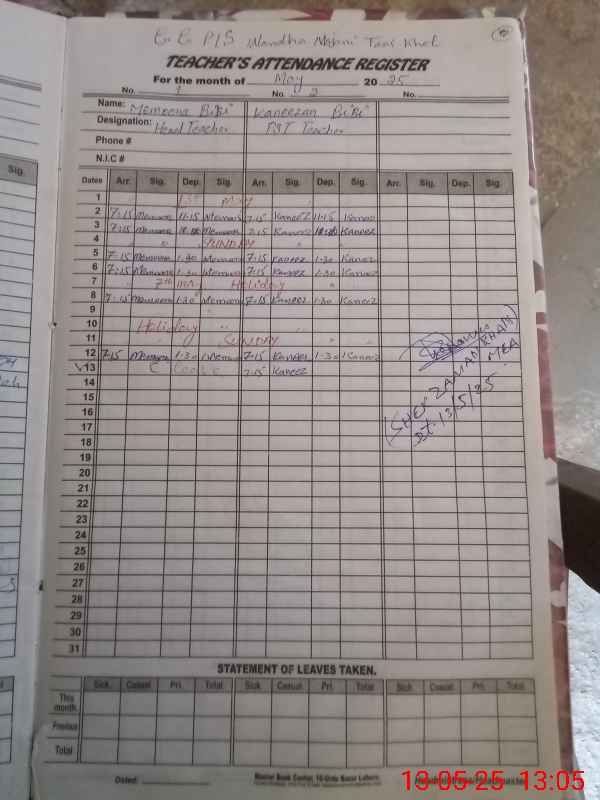 G G P/S Wandha Taar Khel
TEACHER'S ATTENDANCE REGISTER
For the month of May 20 25
No. 1 No. 2 No.
Name: Memoona BiBi Kaneezan BiBi
Designation: Head Teacher PST Teacher
Phone #
N.I.C #
Dates Arr. Sig. Dep. Sig. Arr. Sig. Dep. Sig. Arr. Sig. Dep. Sig.
1 1st May
2 7:15 Memoona 11-15 Memoona 7:15 Kaneez 11-15 Kaneez
3 7:15 Memoona Memoona 7:15 Kaneez Kaneez
4 " SUNDAY " "
5 7:15 Memoona 1-30 Memoona 7:15 Kaneez 1-30 Kaneez
6 7:15 Memoona 1-30 Memoona 7:15 Kaneez 1-30 Kaneez
7 7th May Holiday
8 7:15 Memoona 1-30 Memoona 7:15 Kaneez 1-30 Kaneez
9
10 Holiday " "
11 " SUNDAY " "
12 7:15 Memoona 1-30 Memoona 7:15 Kaneez 1-30 Kaneez
13 C Leave 7:15 Kaneez
(SHER ZAMAD KHAN)
MEA
Dt. 13/5/25
14
15
16
17
18
19
20
21
22
23
24
25
26
27
28
29
30
31
STATEMENT OF LEAVES TAKEN.
Sick. Casual. Pri. Total. Sick. Casual. Pri. Total. Sick. Casual. Pri. Total.
This month.
Previous
Total
Dated:
Sig.
13-05-25 13:05